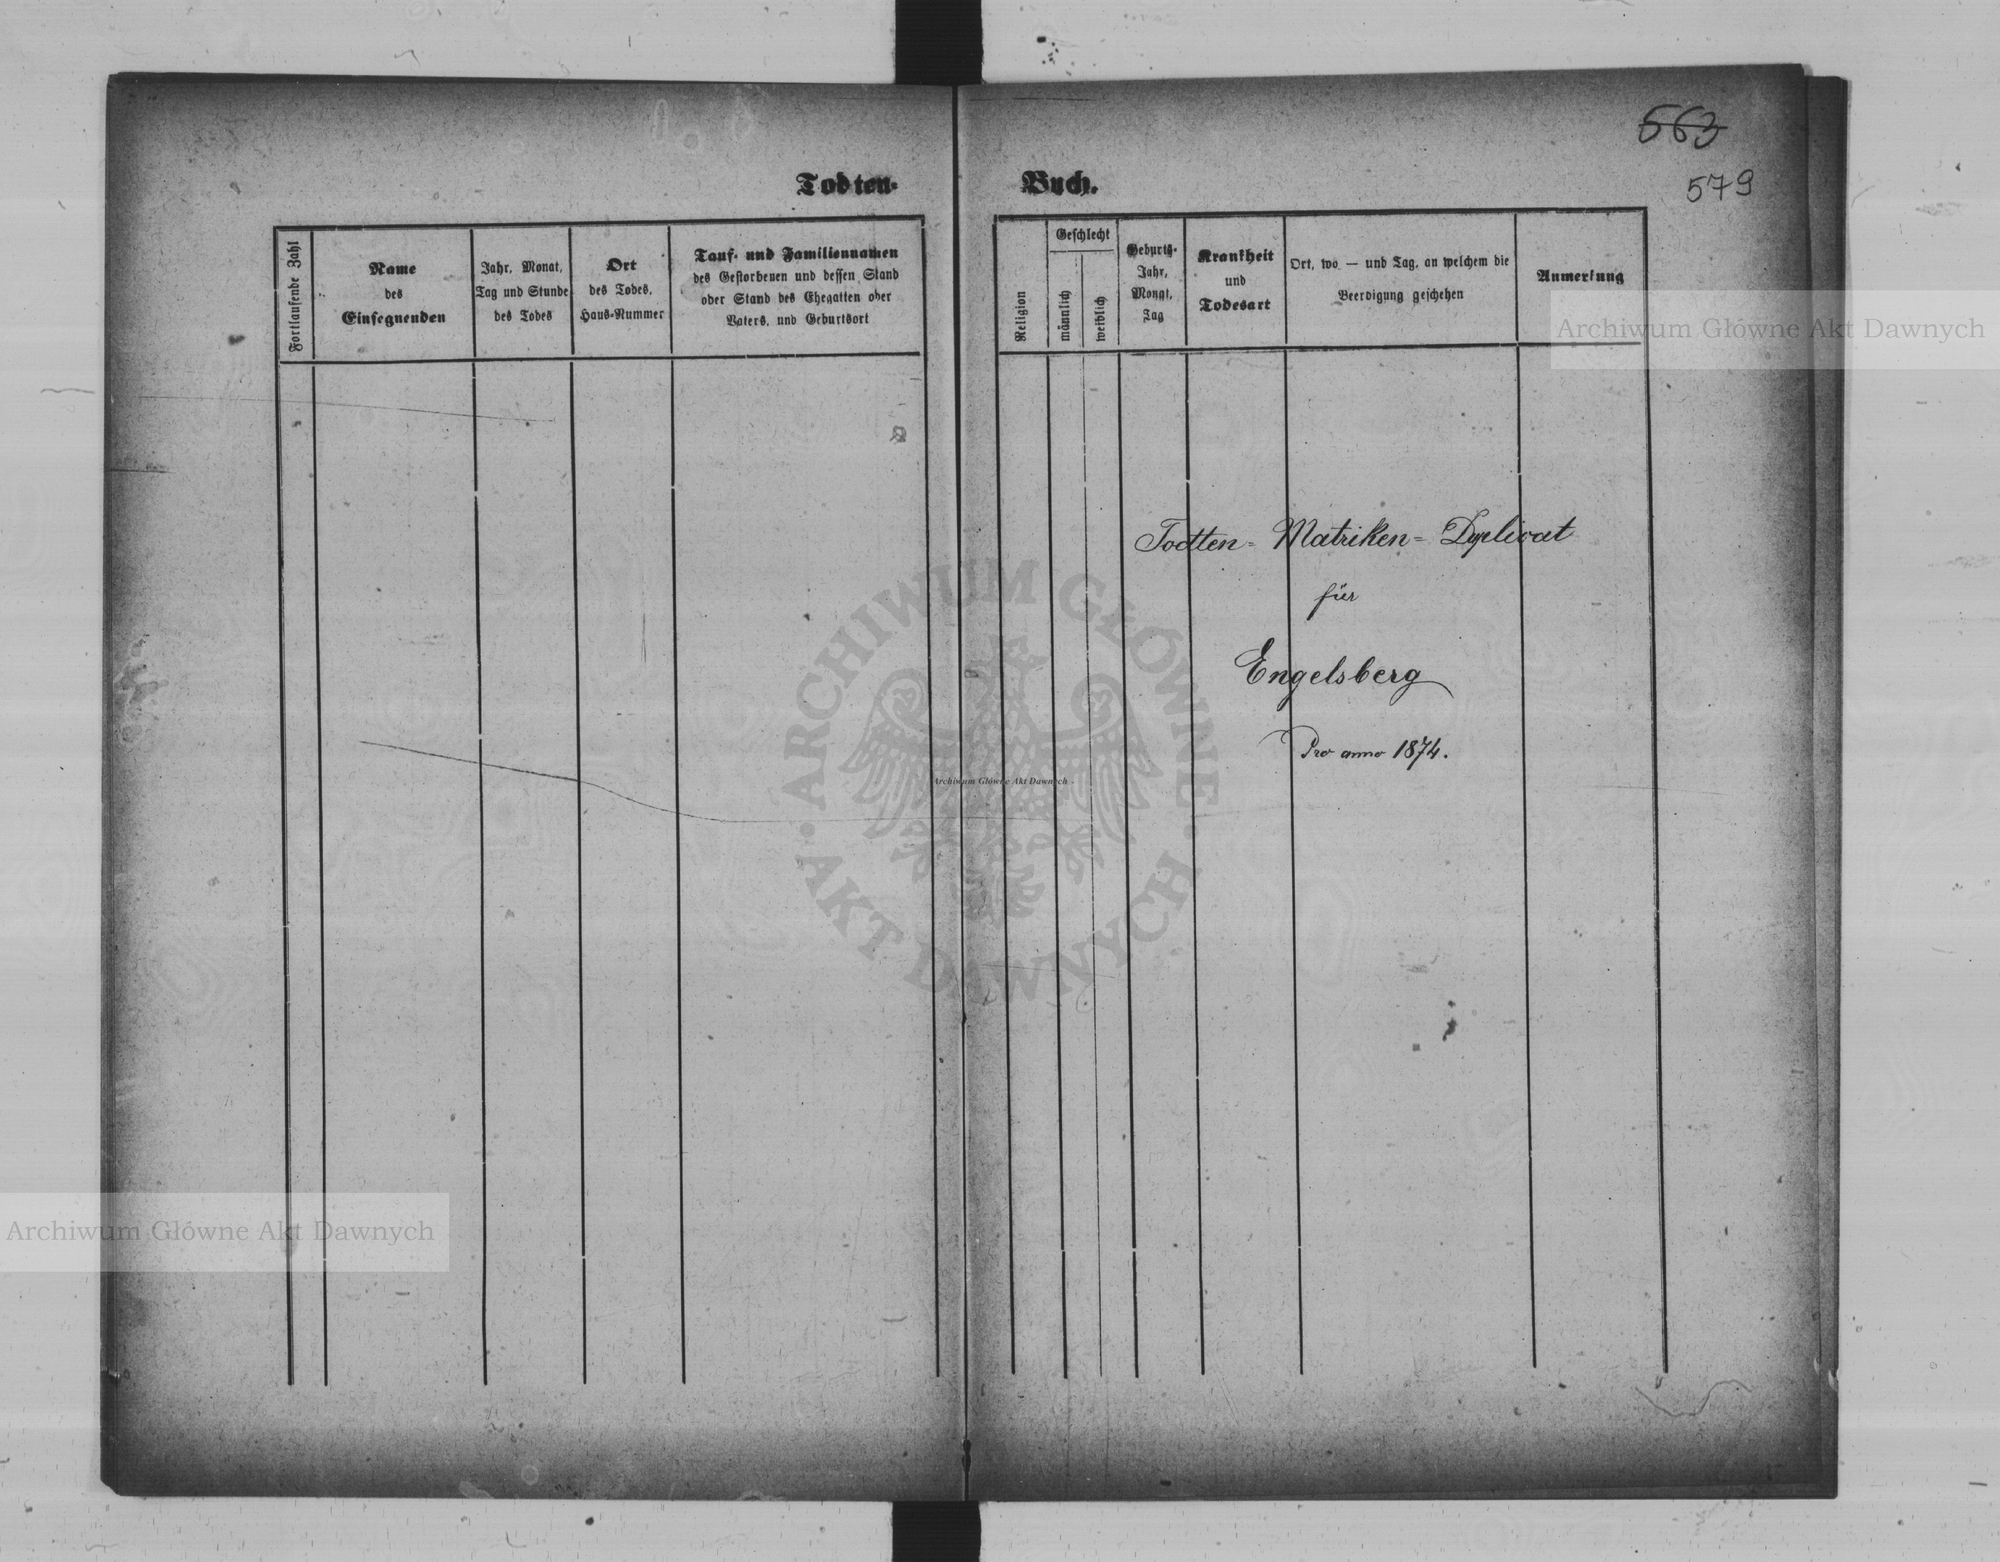 563
579
Todten-
Buch.
Fortlaufende Zahl
Name
des
Einsegnenden
Jahr, Monat,
Tag und Stunde
des Todes
Ort
des Todes,
Haus-Nummer
Tauf- und Familiennamen
des Gestorbenen und dessen Stand
oder Stand des Ehegatten oder
Vaters, und Geburtsort
Religion
Geschlecht
männlich
weiblich
Geburts-
Jahr,
Monat,
Tag
Krankheit
und
Todesart
Ort, wo — und Tag, an welchem die
Beerdigung geschehen
Anmerkung
Archiwum Główne Akt Dawnych
Todten- Matriken- Duplicat
für
Engelsberg
Pro anno 1874.
ARCHIWUM GŁÓWNE
AKT DAWNYCH
Archiwum Główne Akt Dawnych
Archiwum Główne Akt Dawnych